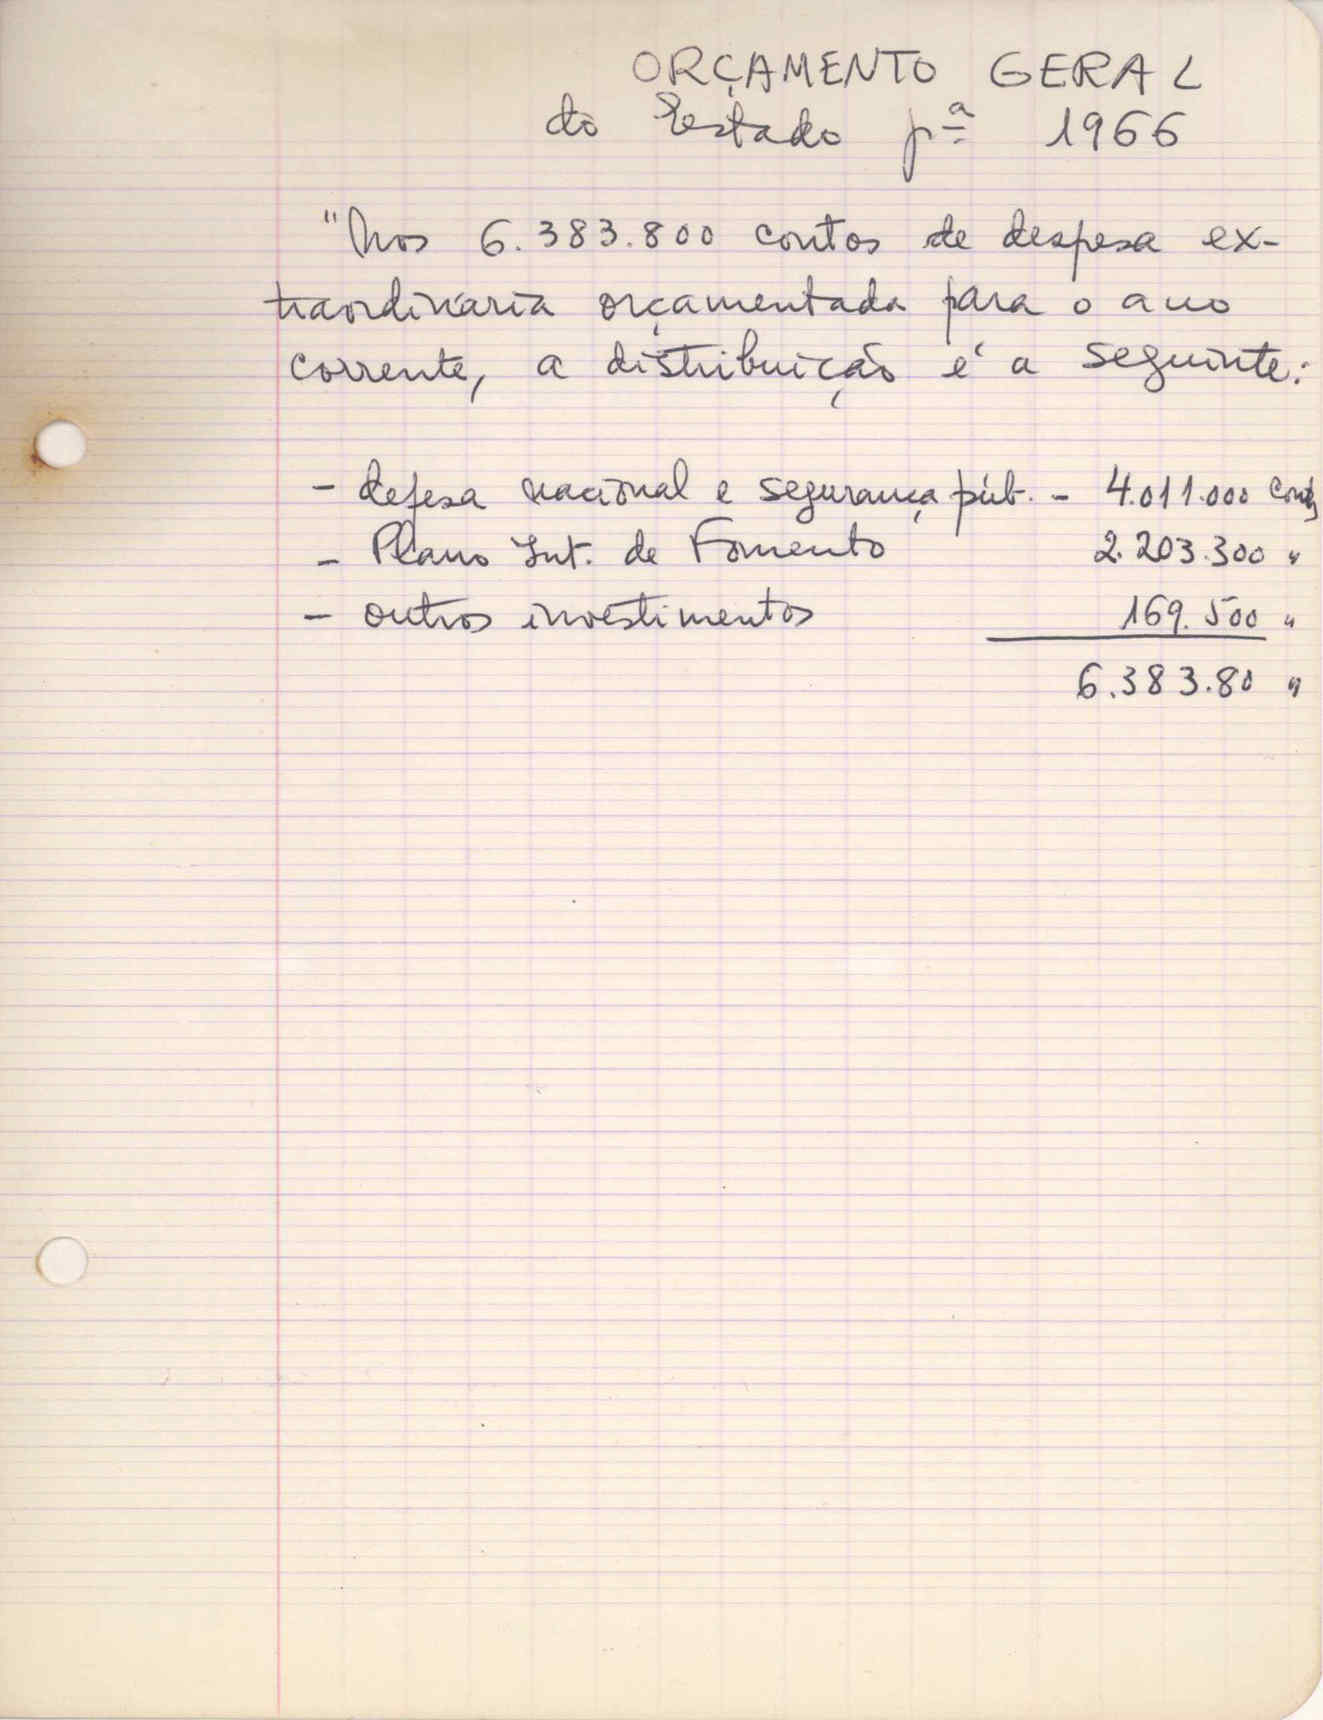 ORÇAMENTO GERAL
do Estado pª 1966
"Nos 6.383.800 contos de despesa ex-
traordinária orçamentada para o ano
corrente, a distribuição é a seguinte:
- defesa nacional e segurança púb. - 4.011.000 contos
- Plano Int. de Fomento 2.203.300 "
- outros investimentos 169.500 "
6.383.80 "